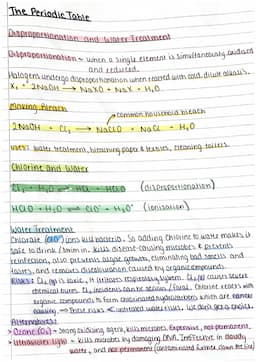 The Periodic Table
Disproportionation and Water Treatment
Disproportionation - when a single element is simultaneously oxidised
and reduced.
Halogens undergo disproportionation when reacted with cold, dilute alkalis,
X₂ + 2NaOH → NaXO + NaX + H₂O
Making Bleach
common household bleach
2NaOH + Cl₂ → NaClO + NaCl + H₂O
uses: water treatment, bleaching paper & textiles, cleaning toilets.
Chlorine and Water
Cl₂ + H₂O ⇌ HCl + HClO (disproportionation)
HClO + H₂O ⇌ ClO⁻ + H₃O⁺ (ionisation)
Water Treatment
Chlorate (ClO⁻) ions kill bacteria. So adding chlorine to water makes it
safe to drink/swim in. kills disease-causing microbes & prevents
reinfection, also prevents algae growth, eliminating bad smells and
tastes, and removes discolouration caused by organic compounds.
Risks: Cl₂ (g) is toxic, it irritates respiratory system. Cl₂ (l) causes severe
chemical burns. Cl₂ incidents can be serious/fatal. Chlorine reacts with
organic compounds to form chlorinated hydrocarbons which are cancer
causing → These risks < untreated water risks. We don't get a choice.
Alternatives:
> Ozone (O₃) - Strong oxidising agent, kills microbes. Expensive, not permanent.
> Ultraviolet light - kills microbes by damaging DNA. Ineffective in cloudy
water, and not permanent (contaminated further down the line)